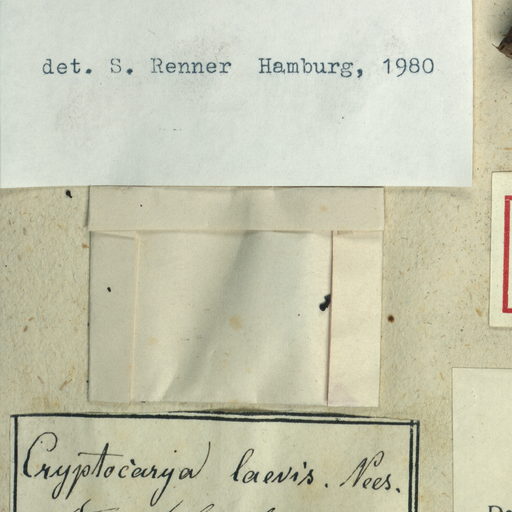 det. S. Renner Hamburg, 1980
Cryptocarya laevis. Nees.